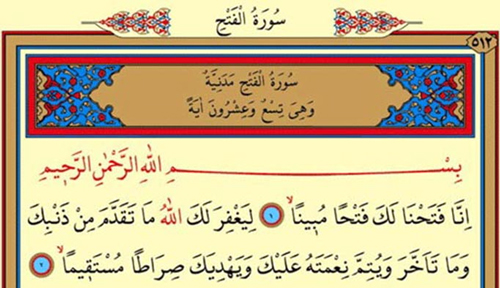 سُورَةُ الْفَتْحِ
٥١٢
سُورَةُ الْفَتْحِ مَدَنِيَّةٌ
وَهِىَ تِسْعٌ وَعِشْرُونَ اٰيَةً
بِسْــــــــمِ اللهِ الرَّحْمٰنِ الرَّحٖيمِ
اِنَّا فَتَحْنَا لَكَ فَتْحًا مُبٖينًاۙ ﴿١﴾ لِيَغْفِرَ لَكَ اللهُ مَا تَقَدَّمَ مِنْ ذَنْبِكَ
وَمَا تَاَخَّرَ وَيُتِمَّ نِعْمَتَهُ عَلَيْكَ وَيَهْدِيَكَ صِرَاطًا مُسْتَقٖيمًاۙ ﴿٢﴾